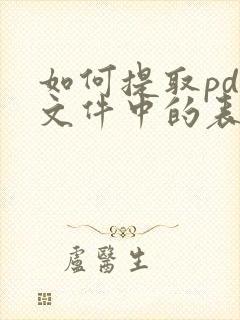 如何提取pd
文件中的表
盧醫生